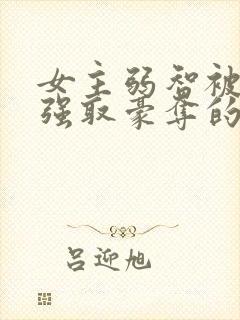 女主弱智被
强取豪夺的
吕迎旭